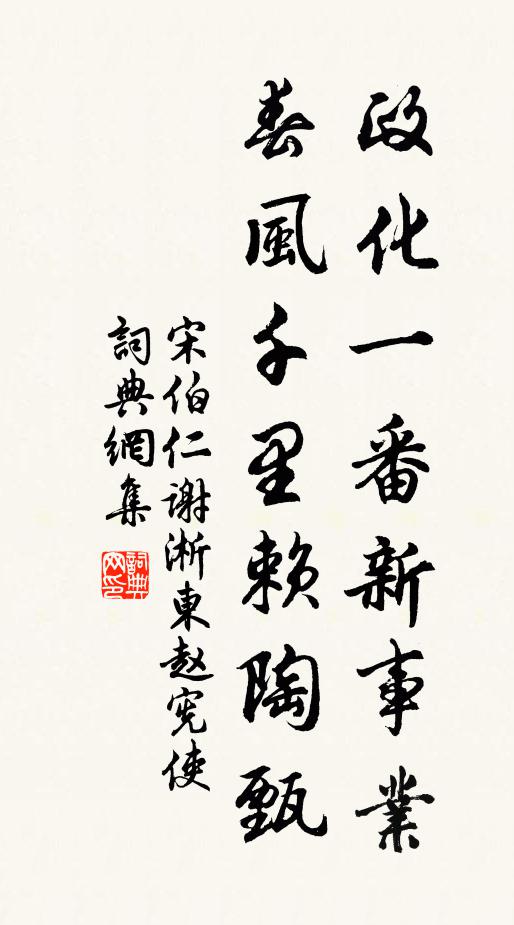 政化一番新事業
春風千里賴陶甄
宋伯仁謝浙東趙宪使
詞典網集
詞典网印